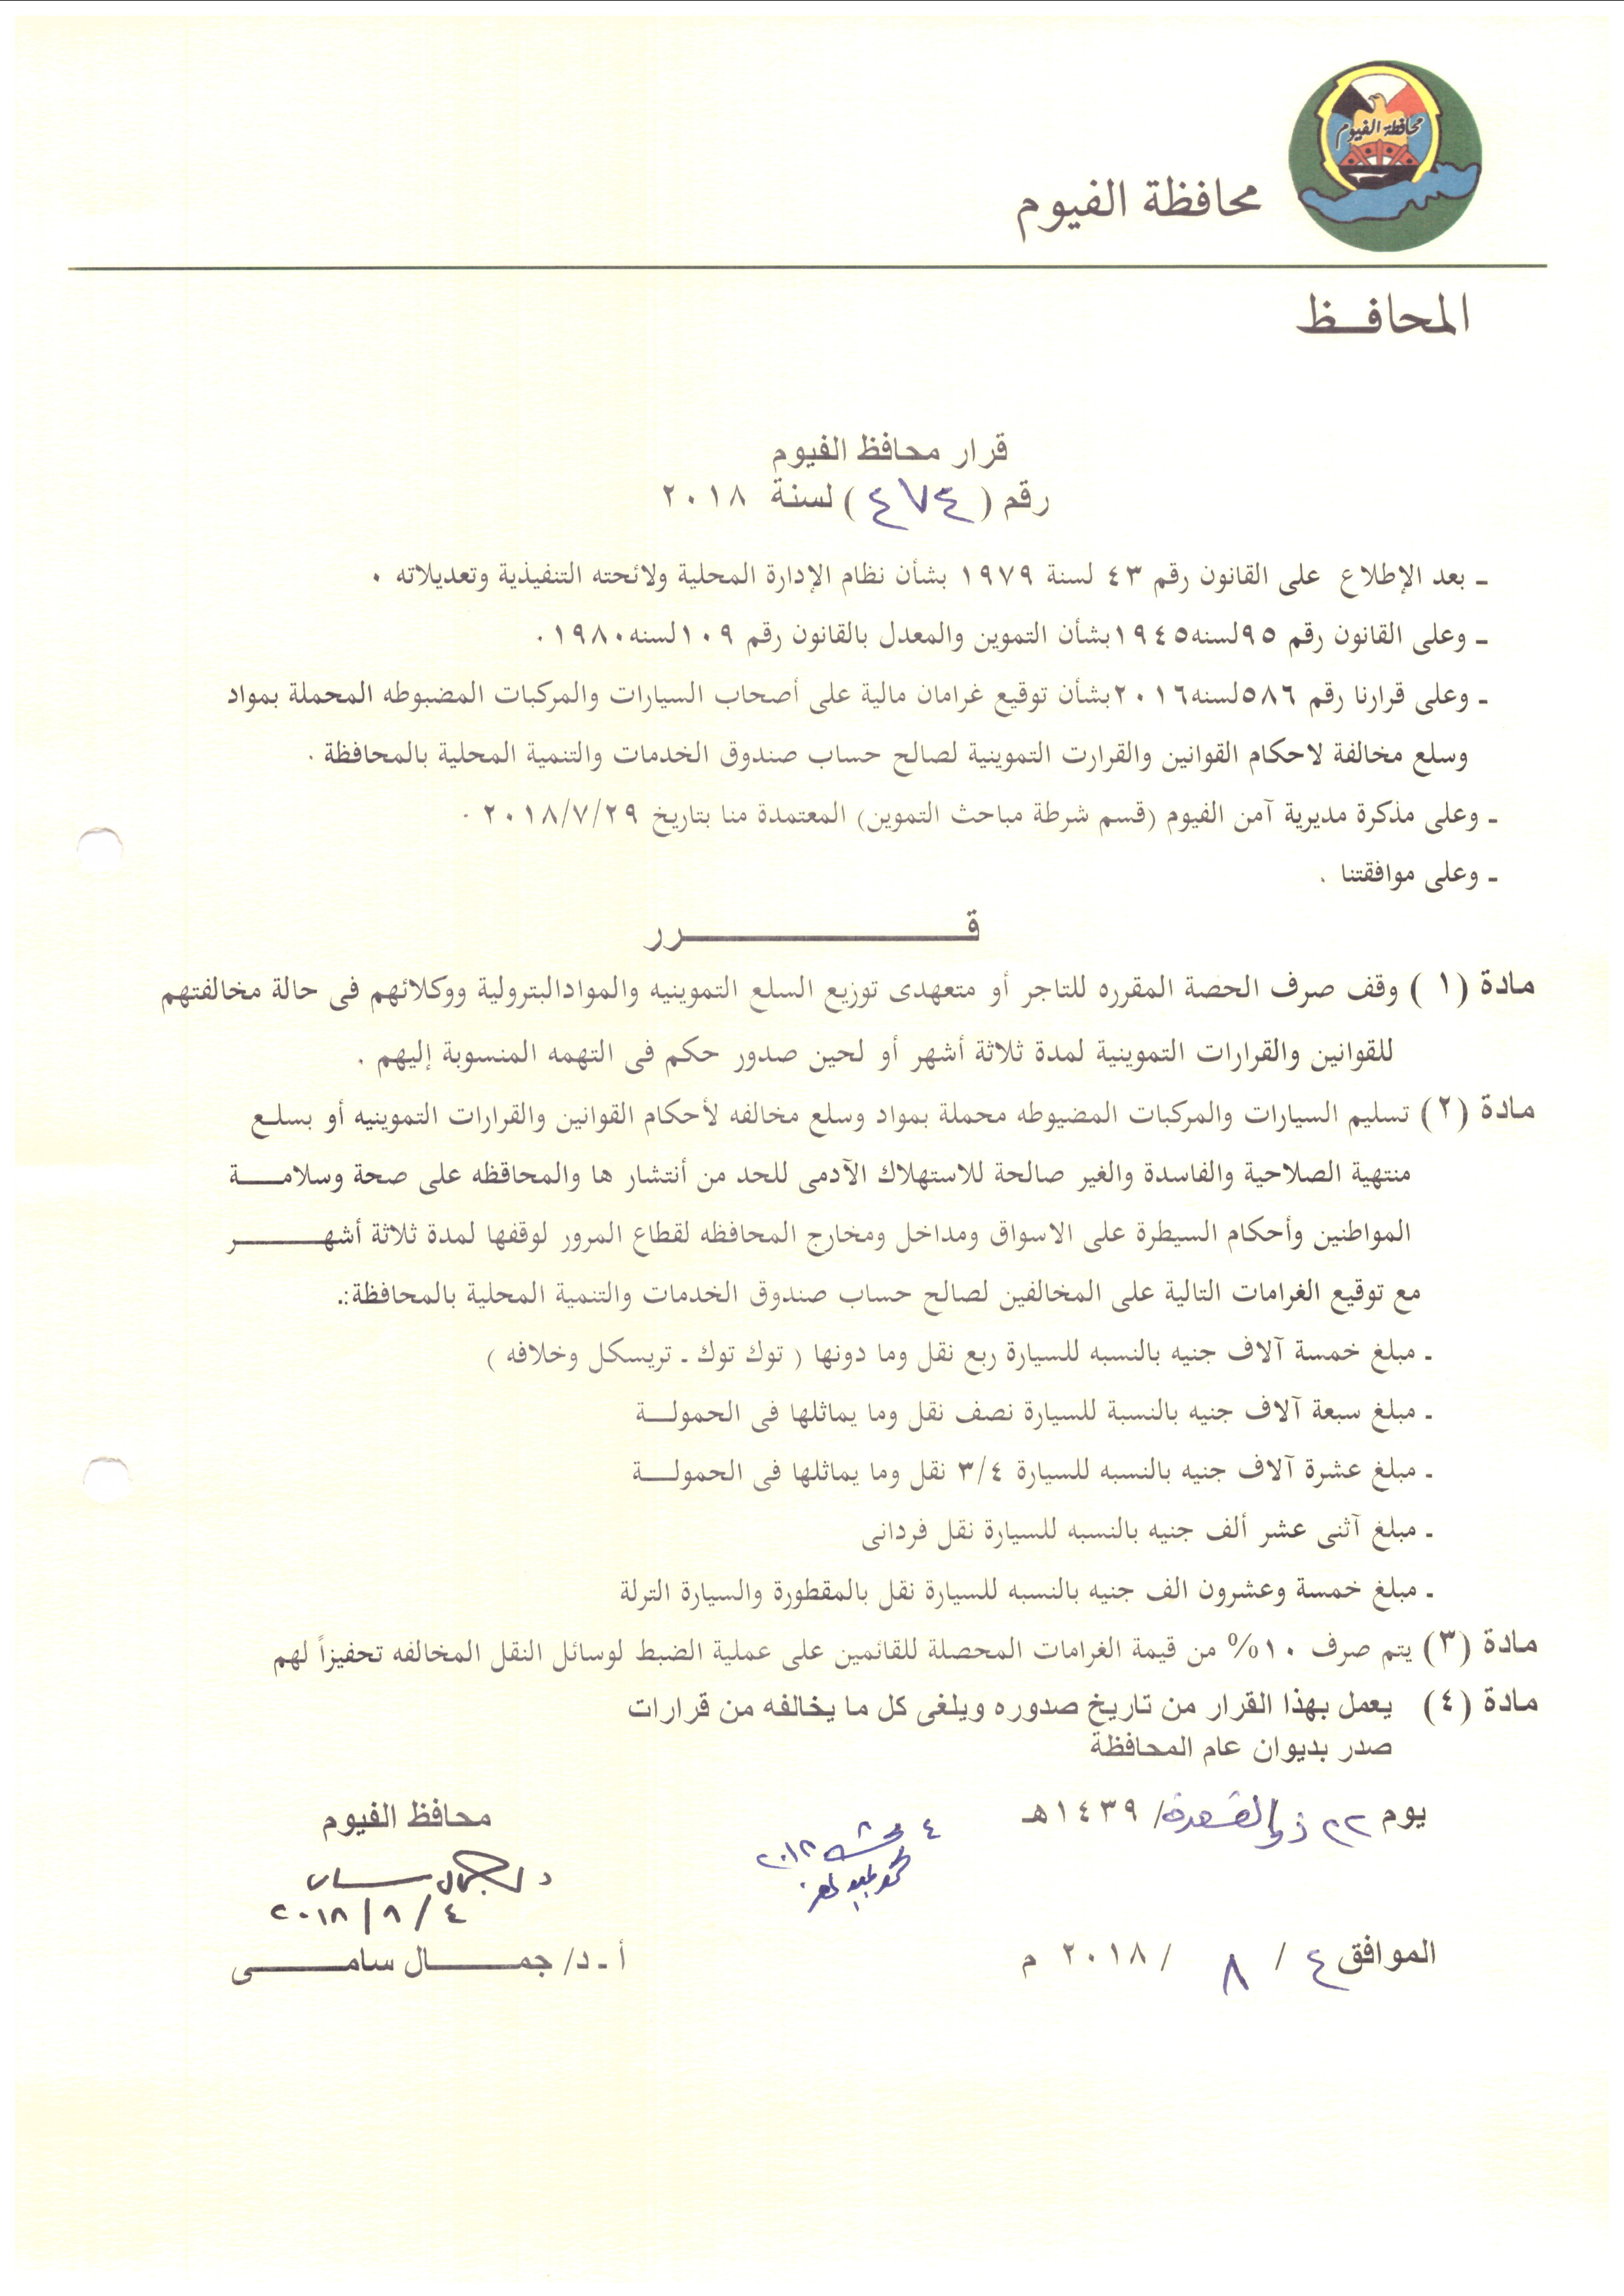 محافظة الفيوم
محافظة الفيوم
المحافــظ
قرار محافظ الفيوم
رقم ( ٤٧٤ ) لسنة ٢٠١٨
ـ بعد الإطلاع على القانون رقم ٤٣ لسنة ١٩٧٩ بشأن نظام الإدارة المحلية ولائحته التنفيذية وتعديلاته ٠
ـ وعلى القانون رقم ٩٥لسنه١٩٤٥بشأن التموين والمعدل بالقانون رقم ١٠٩لسنه١٩٨٠.
ـ وعلى قرارنا رقم ٥٨٦لسنه٢٠١٦بشأن توقيع غرامان مالية على أصحاب السيارات والمركبات المضبوطه المحملة بمواد
وسلع مخالفة لاحكام القوانين والقرارت التموينية لصالح حساب صندوق الخدمات والتنمية المحلية بالمحافظة .
ـ وعلى مذكرة مديرية آمن الفيوم (قسم شرطة مباحث التموين) المعتمدة منا بتاريخ ٢٠١٨/٧/٢٩ .
ـ وعلى موافقتنا .
قــــــــــــــــرر
مادة (١ ) وقف صرف الحصة المقرره للتاجر أو متعهدى توزيع السلع التموينيه والموادالبترولية ووكلائهم فى حالة مخالفتهم
للقوانين والقرارات التموينية لمدة ثلاثة أشهر أو لحين صدور حكم فى التهمه المنسوبة إليهم .
مادة (٢) تسليم السيارات والمركبات المضبوطه محملة بمواد وسلع مخالفه لأحكام القوانين والقرارات التموينيه أو بسلـع
منتهية الصلاحية والفاسدة والغير صالحة للاستهلاك الآدمى للحد من أنتشار ها والمحاقظه على صحة وسلامــــة
المواطنين وأحكام السيطرة على الاسواق ومداخل ومخارج المحافظه لقطاع المرور لوقفها لمدة ثلاثة أشهــــــــر
مع توقيع الغرامات التالية على المخالفين لصالح حساب صندوق الخدمات والتنمية المحلية بالمحافظة:.
ـ مبلغ خمسة آلاف جنيه بالنسبه للسيارة ربع نقل وما دونها ( توك توك ـ تريسكل وخلافه )
ـ مبلغ سبعة آلاف جنيه بالنسبة للسيارة نصف نقل وما يماثلها فى الحمولـــة
ـ مبلغ عشرة آلاف جنيه بالنسبه للسيارة ٣/٤ نقل وما يماثلها فى الحمولـــة
ـ مبلغ آثنى عشر ألف جنيه بالنسبه للسيارة نقل فردانى
ـ مبلغ خمسة وعشرون الف جنيه بالنسبه للسيارة نقل بالمقطورة والسيارة الترلة
مادة (٣) يتم صرف ١٠% من قيمة الغرامات المحصلة للقائمين على عملية الضبط لوسائل النقل المخالفه تحفيزاً لهم
مادة (٤) يعمل بهذا القرار من تاريخ صدوره ويلغى كل ما يخالفه من قرارات
صدر بديوان عام المحافظة
يوم ٢٢ ذو القعدة/ ١٤٣٩هـ
محافظ الفيوم
٢٠١٨/٨/٤
الموافق ٤ / ٨ / ٢٠١٨ م
أ ـ د/ جمــــال سامــــــى